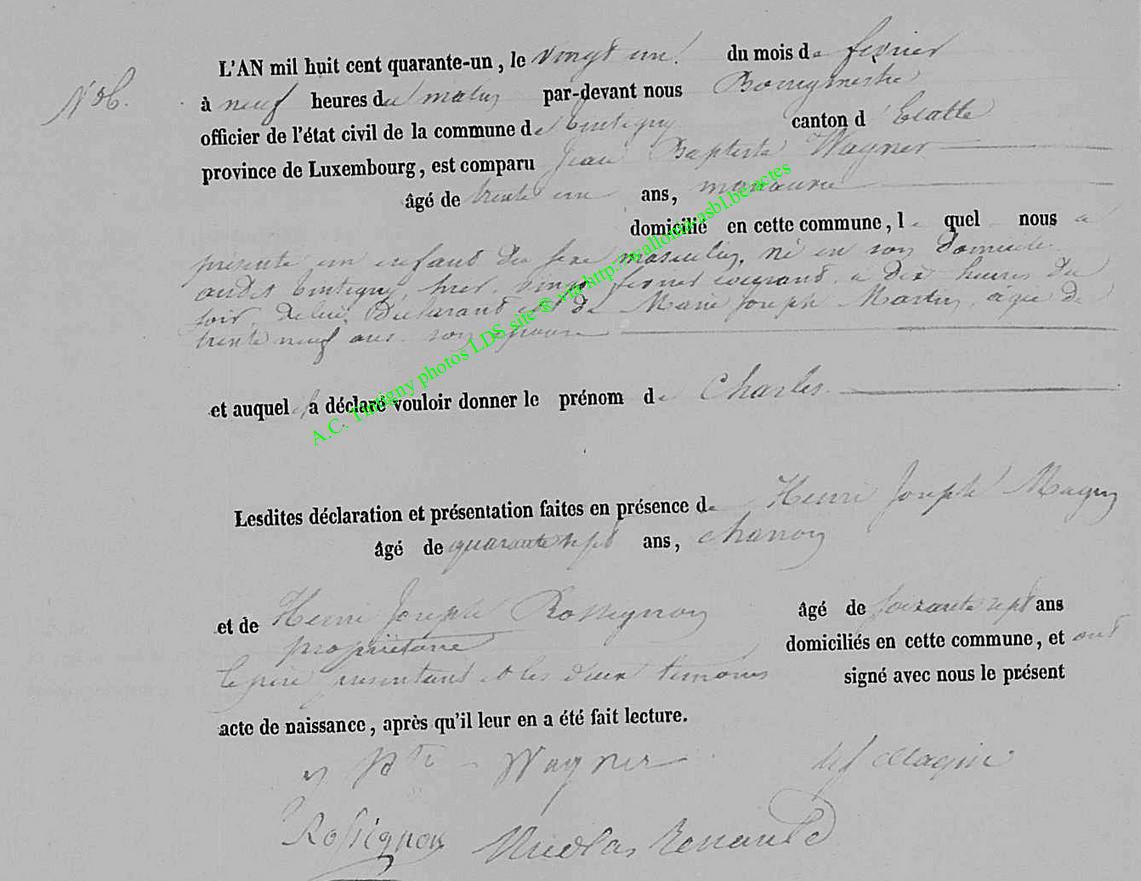 N° 6.
L'AN mil huit cent quarante-un, le vingt un du mois de fevrier
à neuf heures du matin par-devant nous Bourgmestre
officier de l'état civil de la commune de tintigny canton d'Etalle
province de Luxembourg, est comparu Jean Baptiste Wagner
âgé de trente un ans, manœuvre
domicilié en cette commune, le quel nous a
présenté un enfant du sexe masculin, né en son domicile
audit tintigny, hier, vingt fevrier courant, a dix heures du
soir, de lui Déclarant et de Marie Joseph Martin agée de
trente neuf ans son épouse
et auquel il a déclaré vouloir donner le prénom de Charles
Lesdites déclaration et présentation faites en présence de Henri Joseph Magny
âgé de quarante sept ans,
et de Henri Joseph Rossignon âgé de soixante sept ans
propriétaire domiciliés en cette commune, et ont
le père présentant et les deux temoins signé avec nous le présent
acte de naissance, après qu'il leur en a été fait lecture.
Wagner
Rossignon Nicolas
A.C. Tintigny photos LDS site ® via http://wallonia.asbl.be/actes